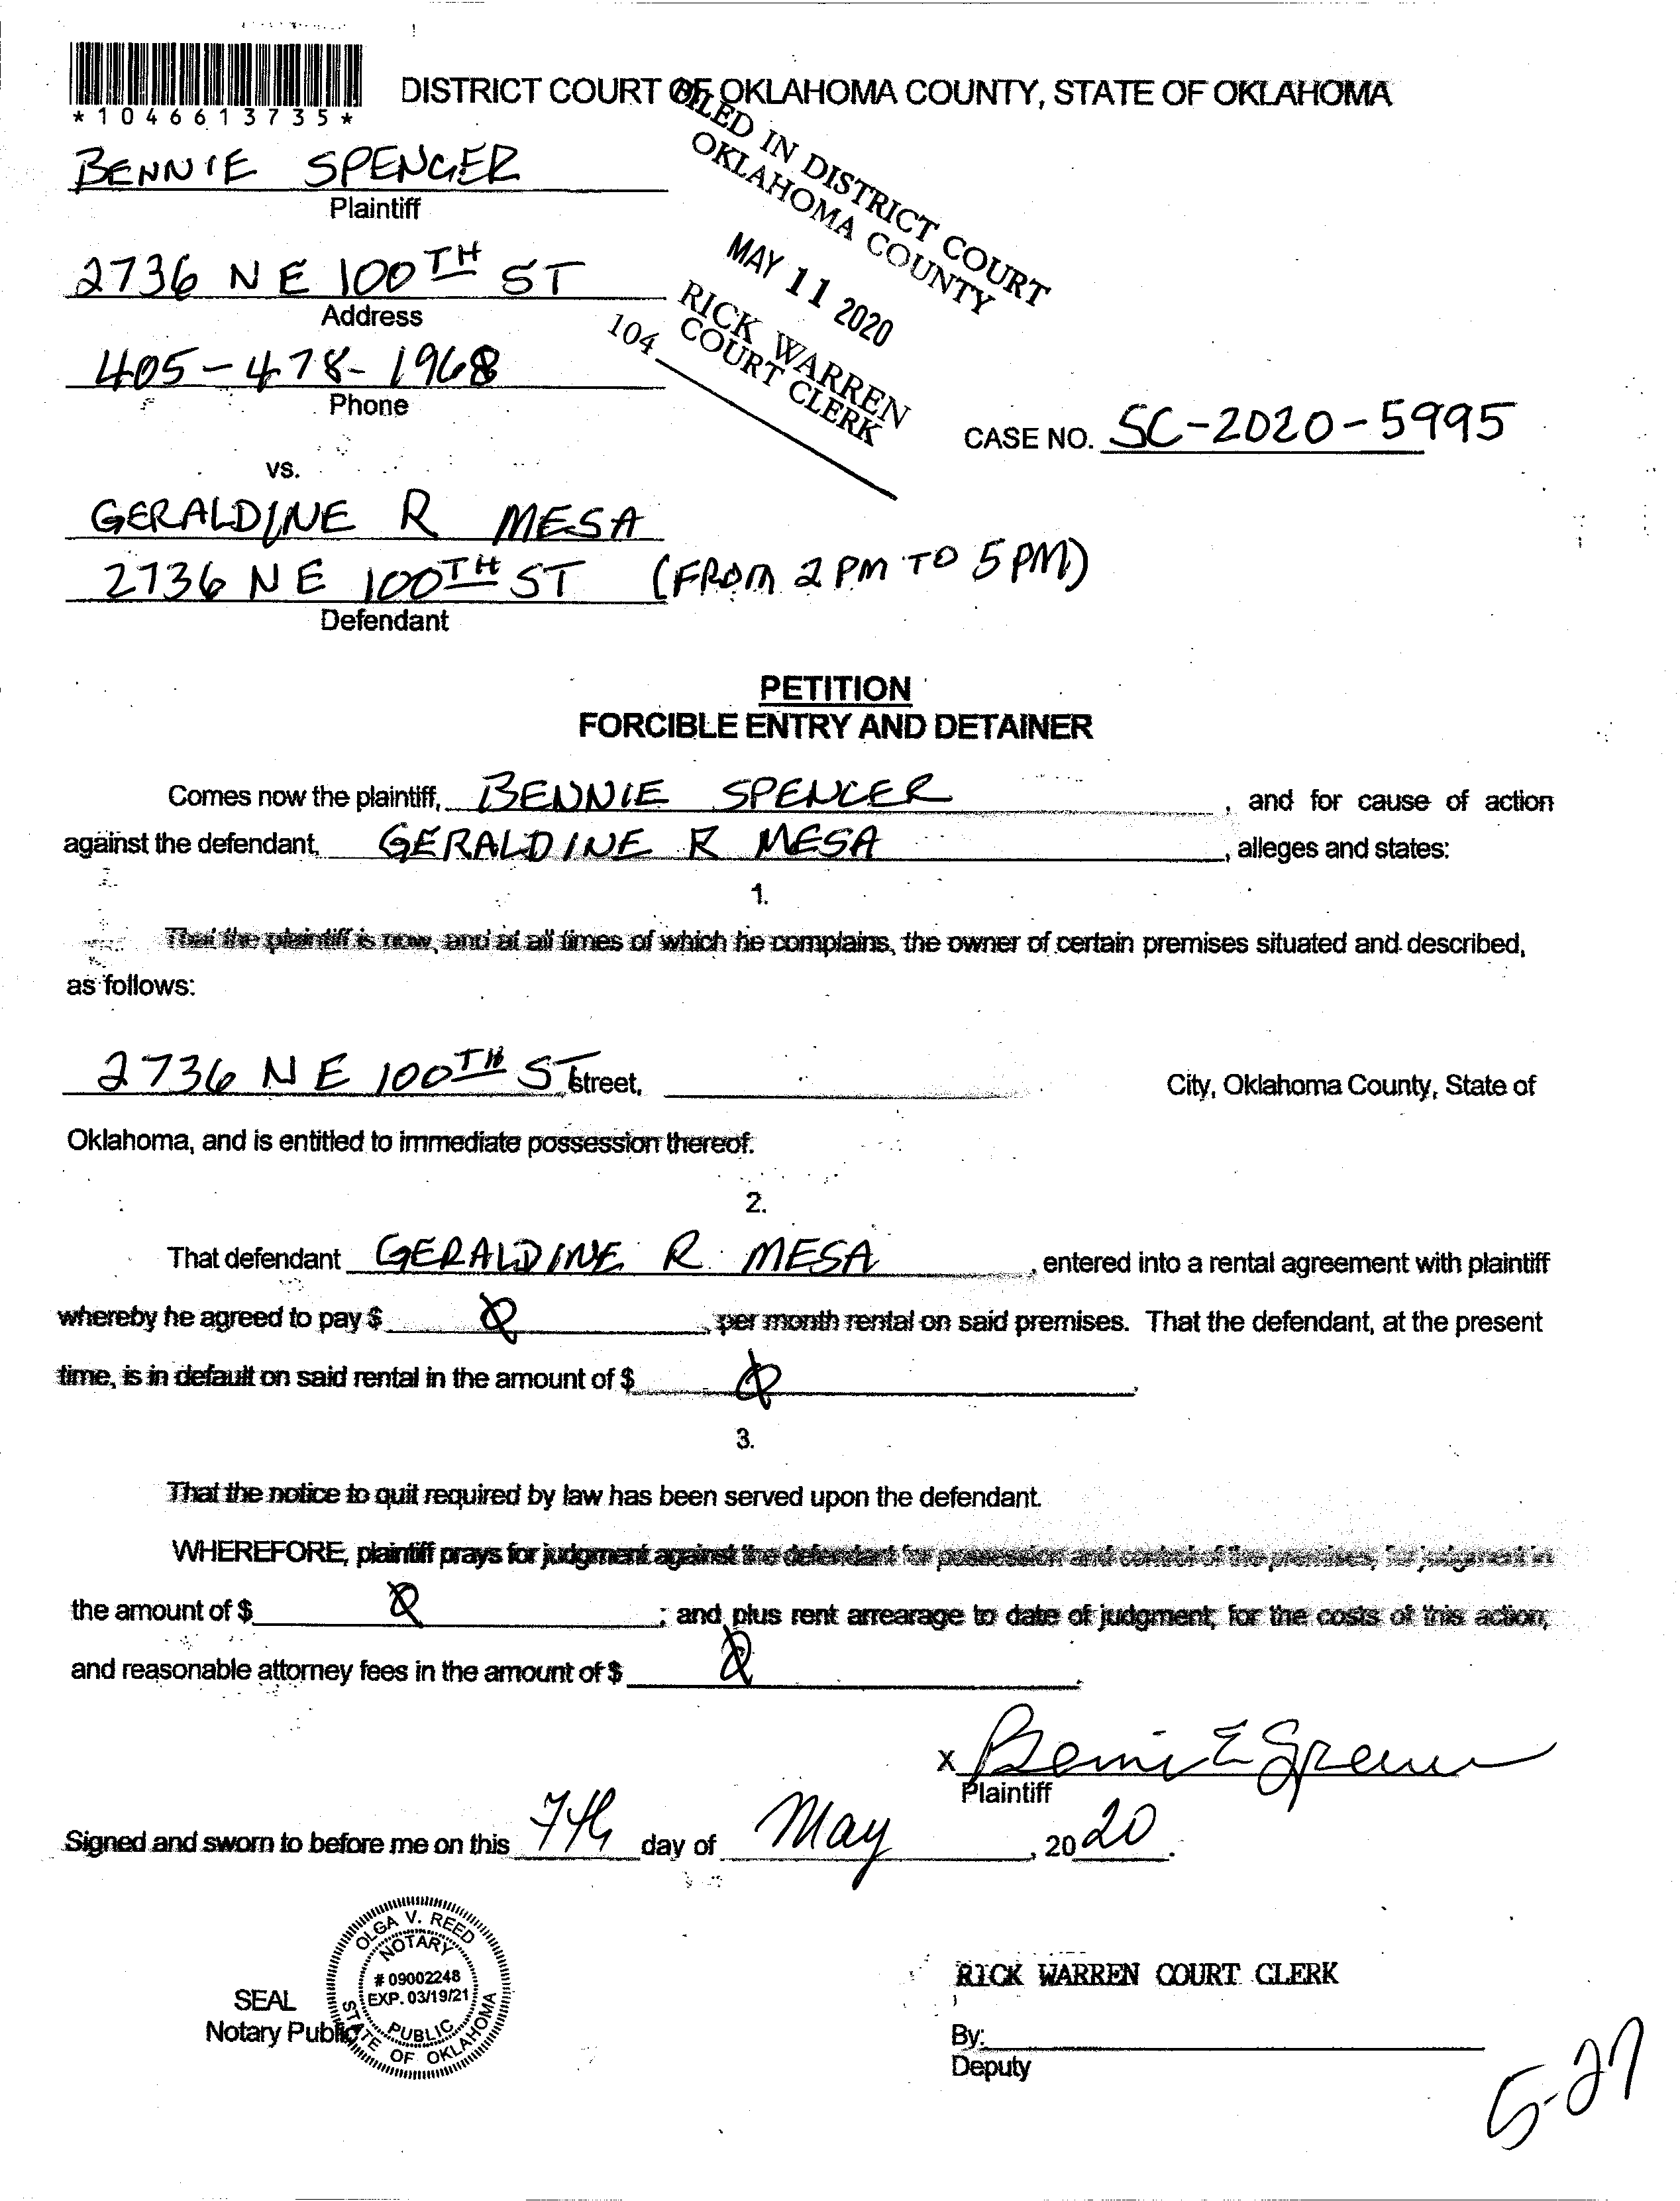 *1046613735*
DISTRICT COURT OF OKLAHOMA COUNTY, STATE OF OKLAHOMA
FILED IN DISTRICT COURT
OKLAHOMA COUNTY
MAY 11 2020
RICK WARREN
COURT CLERK
104
BENNIE SPENCER
Plaintiff
2736 NE 100TH ST
Address
405-478-1968
Phone
CASE NO. SC-2020-5995
vs.
GERALDINE R MESA
2736 NE 100TH ST (FROM 2 PM TO 5 PM)
Defendant
PETITION
FORCIBLE ENTRY AND DETAINER
Comes now the plaintiff, BENNIE SPENCER, and for cause of action
against the defendant, GERALDINE R MESA, alleges and states:
1.
That the plaintiff is now, and at all times of which he complains, the owner of certain premises situated and described,
as follows:
2736 NE 100TH ST street, City, Oklahoma County, State of
Oklahoma, and is entitled to immediate possession thereof.
2.
That defendant GERALDINE R. MESA, entered into a rental agreement with plaintiff
whereby he agreed to pay $ 0, per month rental on said premises. That the defendant, at the present
time, is in default on said rental in the amount of $ 0.
3.
That the notice to quit required by law has been served upon the defendant.
WHEREFORE, plaintiff prays for judgment against the defendant for possession and control of the premises, for judgment in
the amount of $ 0; and plus rent arrearage to date of judgment; for the costs of this action;
and reasonable attorney fees in the amount of $ 0.
X Bennie E Spencer
Plaintiff
Signed and sworn to before me on this 7th day of May, 2020.
OLGA V. REED
NOTARY
# 09002248
EXP. 03/19/21
PUBLIC
STATE OF OKLAHOMA
SEAL
Notary Public
RICK WARREN COURT CLERK
By:
Deputy
5-27